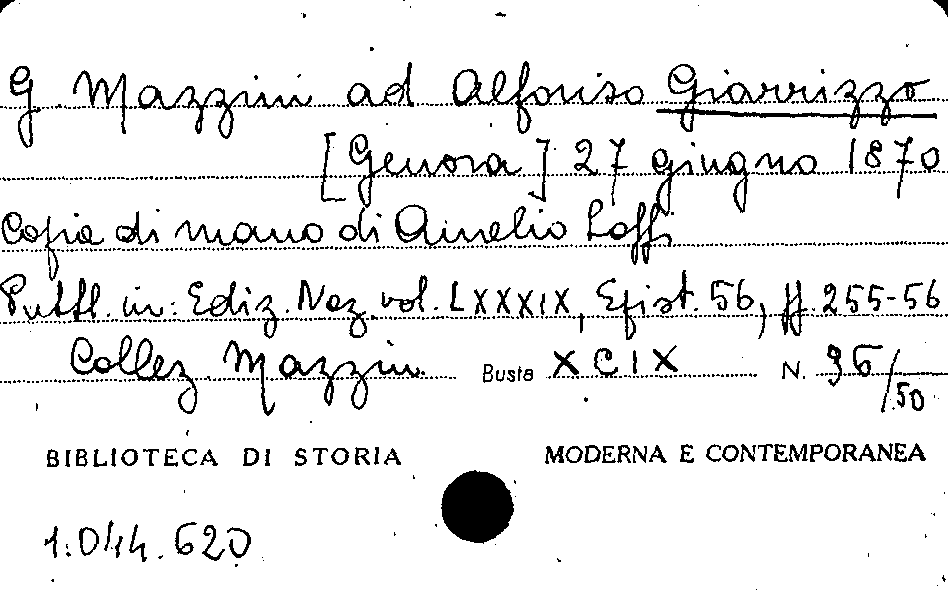 G. Mazzini ad Alfonso Giarrizzo
[Genova] 27 giugno 1870
Copia di mano di Aurelio Saffi
Pubbl. in: Ediz. Naz. vol. LXXXIX, Epist. 56, pp. 255-56
Collez. Mazzini Busta XCIX N. 96/50
BIBLIOTECA DI STORIA MODERNA E CONTEMPORANEA
1.044.620